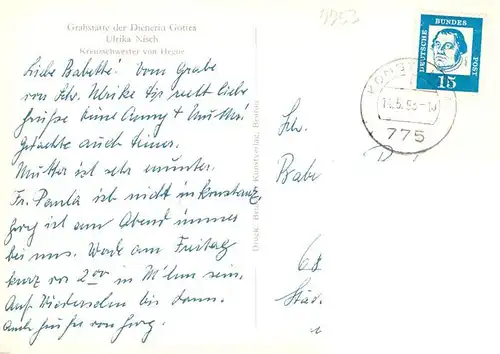 Grabstätte der Dienerin Gottes
Ulrika Nisch
Kreuzschwester von Hegne
Liebe Babette! Vom Grabe
von Schw. Ulrike Dir recht liebe
Grüße Deine Anny & Mutti.
Gedachte auch Deiner.
Mutter ist sehr munter.
Fr. Paula ist nicht in Konstanz,
Georg ist am Abend immer
bei uns. Werde am Freitag
kurz vor 2 00 in M'hm sein.
Auf Wiedersehn bis dann.
Auch Grüße von Georg.
Druck: Kunstverlag,
DEUTSCHE BUNDESPOST
15
KONS
775
Babe
68